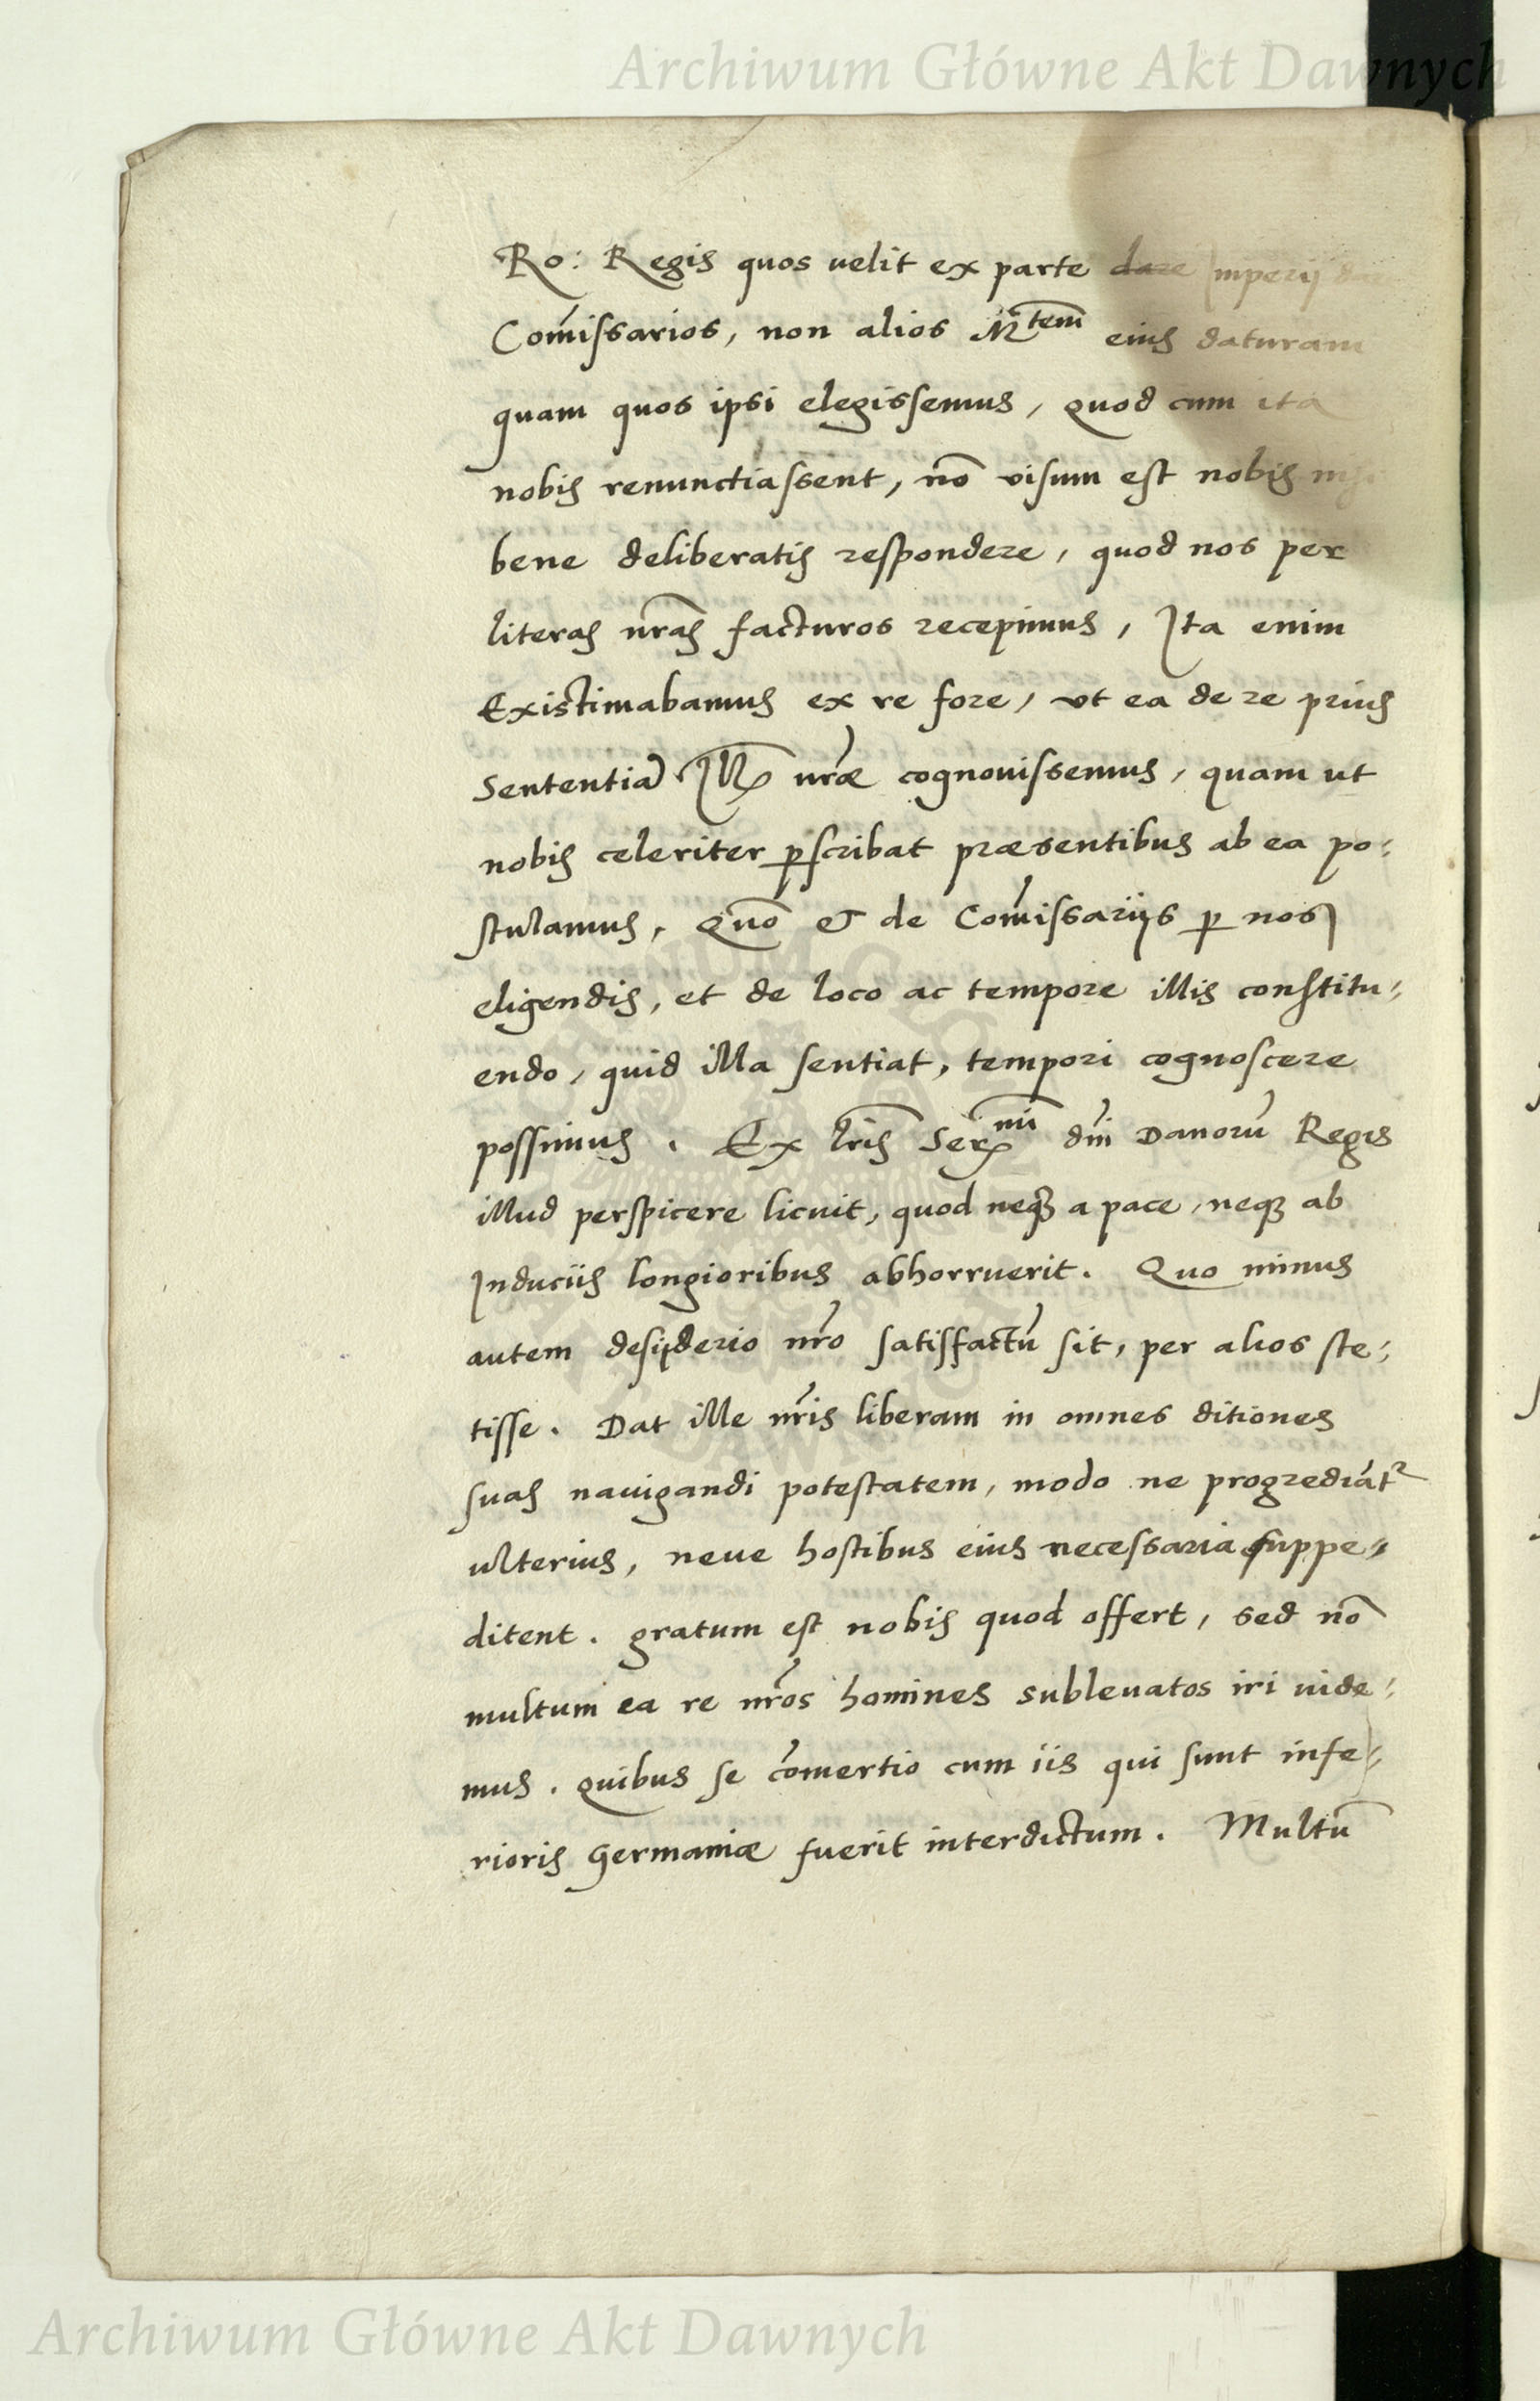 Archiwum Główne Akt Dawnych
Ro: Regis quos uelit ex parte dare Imperij
Com̃issarios, non alios M^tem eius daturam
quam quos ipsi elegissemus, quod cum ita
nobis renunctiassent, nõ visum est nobis
bene deliberatis respondere, quod nos per
literas nr̃as facturos recepimus, Ita enim
Existimabamus ex re fore, vt ea de re prius
Sententiã Ill. vrãe cognouissemus, quam ut
nobis celeriter ꝑscribat præsentibus ab ea po:
stulamus, Quõ & de Com̃issarijs ꝑ nos
eligendis, et de loco ac tempore illis constitu:
endo, quid illa sentiat, tempori cognoscere
possimus. Ex lrĩs Ser^mi dñi Danorũ Regis
illud perspicere licuit, quod neqꝫ a pace, neqꝫ ab
Induciis longioribus abhorruerit. Quo minus
autem desijderio nr̃o satisfactũ sit, per alios ste:
tisse. Dat ille nr̃is liberam in omnes ditiones
suas nauigandi potestatem, modo ne progrediãt^r
ulterius, neue hostibus eius necessaria suppe:
ditent. gratum est nobis quod offert, sed nõ
multum ea re nr̃os homines subleuatos iri uide:
mus. quibus se com̃ertio cum iis qui sunt infe:
rioris Germaniæ fuerit interdictum. Multũ
Archiwum Główne Akt Dawnych